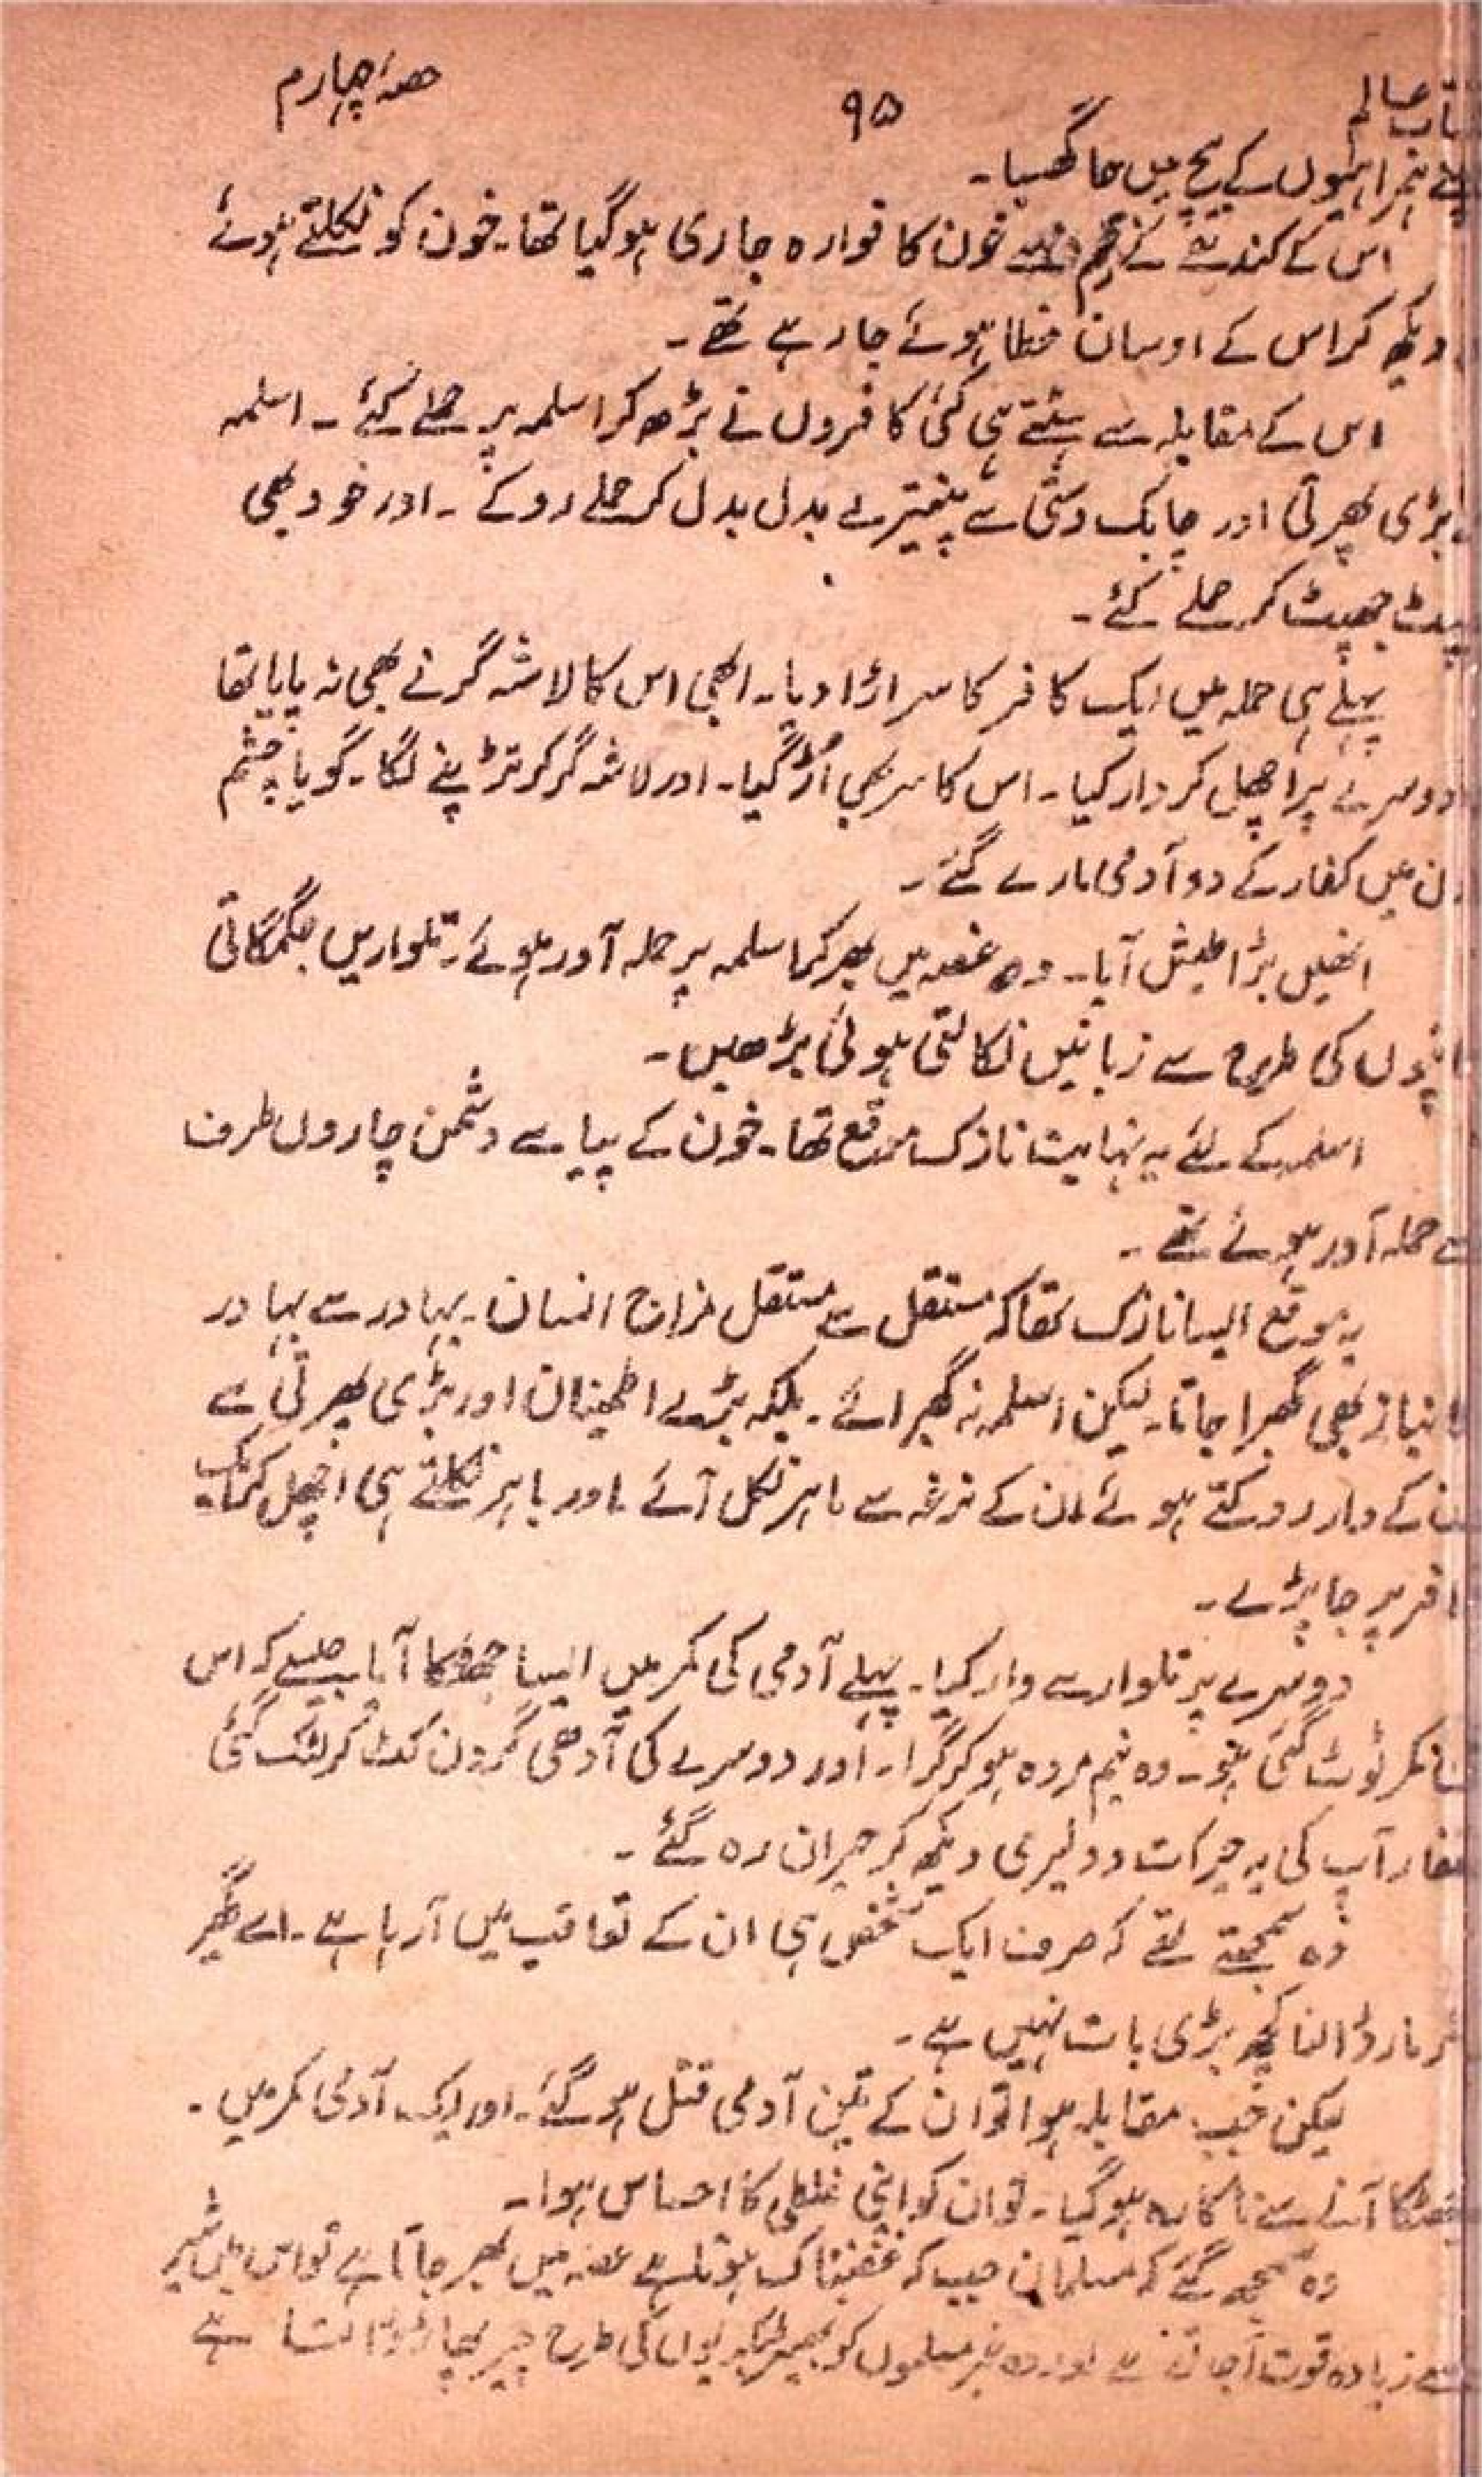 عالم ۹۵ حصہ چہارم
ہمراہیوں کے بیچ میں جا گھسا۔
اس کے کندھے کے زخم سے خون کا فوارہ جاری ہو گیا تھا۔ خون کو نکلتے ہوئے
دیکھ کر اس کے اوسان خطا ہوئے جا رہے تھے۔
اس کے مقابلہ سے ہٹتے ہی کئی کافروں نے بڑھ کر اسلمہ پر حملے کئے۔ اسلمہ
بڑی پھرتی اور چابک دستی سے پینترے بدل بدل کر حملے روکے۔ اور خود بھی
جھپٹ کر حملے کئے۔
پہلے ہی حملہ میں ایک کافر کا سر اڑا دیا۔ ابھی اس کا لاشہ گرنے بھی نہ پایا تھا
دوسرے پر اچھل کر وار کیا۔ اس کا سر بھی اُڑ گیا۔ اور لاشہ گر کر تڑپنے لگا۔ گویا چشم
زدن میں کفار کے دو آدمی مارے گئے۔
انھیں بڑا طیش آیا۔ وہ غصہ میں بھر کر اسلمہ پر حملہ آور ہوئے۔ تلواریں جگمگاتی
کی طرح سے زبانیں نکالتی ہوئی بڑھیں۔
اسلمہ کے لئے یہ نہایت نازک موقع تھا۔ خون کے پیاسے دشمن چاروں طرف
سے حملہ آور ہوئے تھے۔
یہ موقع ایسا نازک تھا کہ مستقل سے مستقل مزاج انسان۔ بہادر سے بہادر
بھی گھبرا جاتا۔ لیکن اسلمہ نہ گھبرائے۔ بلکہ بڑے اطمینان اور بڑی پھرتی سے
ان کے وار روکتے ہوئے ان کے نرغہ سے باہر نکل آئے۔ اور باہر نکلتے ہی اچھل کر ایک
کافر پر جا پڑے۔
دوسرے پر تلوار سے وار کیا۔ پہلے آدمی کی کمر میں ایسا جھٹکا آیا جیسے کہ اس
کمر ٹوٹ گئی ہو۔ وہ نیم مردہ ہو کر گرا۔ اور دوسرے کی آدھی گردن کٹ کر لٹک گئی
کفار آپ کی یہ جرات و دلیری دیکھ کر حیران رہ گئے۔
وہ سمجھتے تھے کہ صرف ایک شخص ہی ان کے تعاقب میں آ رہا ہے۔ اسے گھیر
کر مار ڈالنا کچھ بڑی بات نہیں ہے۔
لیکن جب مقابلہ ہوا تو ان کے تین آدمی قتل ہو گئے۔ اور ایک آدمی کمر میں۔
جھٹکا آنے سے ناکارہ ہو گیا۔ تو ان کو اپنی غلطی کا احساس ہوا۔
وہ سمجھ گئے کہ مسلمان جب کہ غضبناک ہوتا ہے غصہ میں بھر جاتا ہے تو اس میں شیر
سے زیادہ قوت آ جاتی ہے اور وہ غیر مسلموں کو بھیڑ بکریوں کی طرح چیر پھاڑ ڈالتا ہے